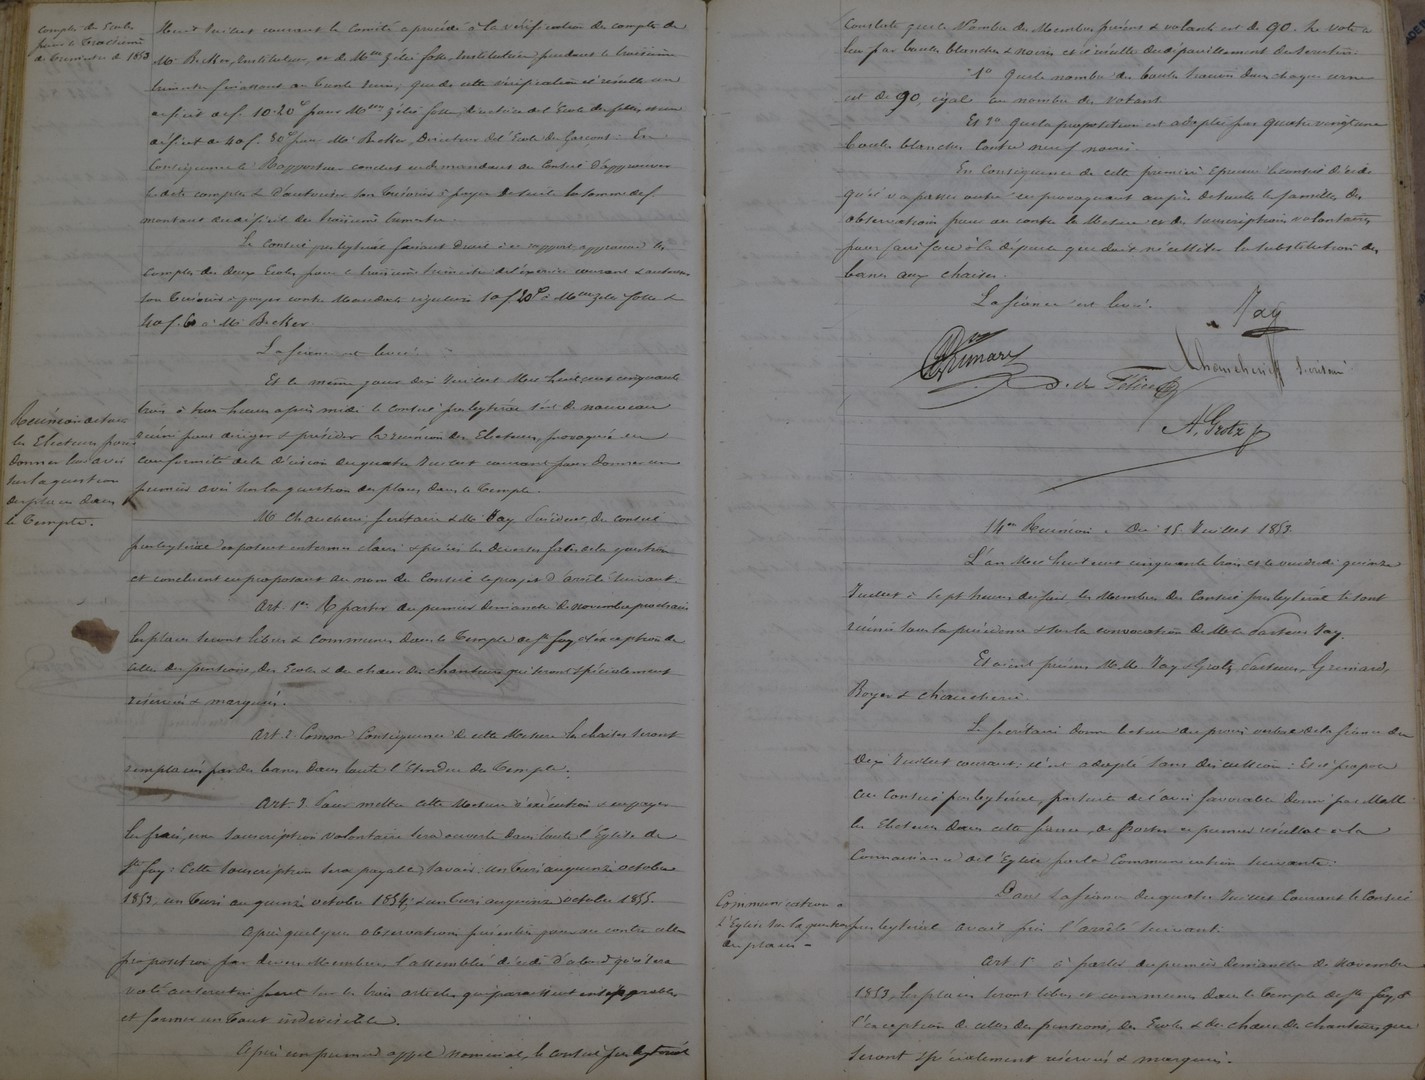 compte des Ecoles
pour le troisième
trimestre de 1853
Mois de Juillet courant le Comité a procédé à la vérification des comptes de
Mr Becker, Instituteur, et de Melle Zélie folle Institutrice pendant le troisième
trimestre finissant au trente Juin; que de cette vérification il résulte un
déficit de f. 10.20c pour Melle Zélie folle, directrice de l'Ecole des filles, et un
déficit de 40 f. 80c pour Mr Becker, Directeur de l'Ecole des Garçons: En
conséquence le Rapporteur conclut en demandant au Conseil d'approuver
les dits comptes & d'autoriser son Trésorier à payer de suite la somme de f.
montant du déficit du troisième trimestre.
Le Conseil presbytéral faisant droit à ce rapport approuve les
comptes des deux Ecoles pour le troisième trimestre de l'exercice courant & autorise
son Trésorier à payer contre Mandats réguliers 10 f 20c à Melle Zélie folle &
40 f. à Mr Becker.
La séance est levée.
Et le même jour dix Juillet Mil huit cent cinquante
trois à trois heures après midi le conseil presbytéral s'est de nouveau
réuni pour diriger & présider la réunion des Electeurs, provoquée en
conformité de la décision du quatre Juillet courant pour donner un
premier avis sur la question des places dans le Temple.
Réunion de tous
les Electeurs pour
donner leur avis
sur la question
des places dans
le Temple.
M Chaucherie secrétaire & Mr Nay Président du conseil
presbytéral exposent en termes clairs & précis les diverses faces de la question
et concluent en proposant au nom du Conseil le projet d'arrêté suivant.
Art. 1er A partir du premier Dimanche de Novembre prochain
les places seront libres & communes dans le Temple de Ste foy à l'exception de
celles des pensions, des Ecoles & du chœur des chanteurs qui seront spécialement
réservées & marquées.
Art. 2. Comme Conséquence de cette Mesure les chaises seront
remplacées par des bancs dans toute l'Etendue du Temple.
Art. 3 Pour mettre cette Mesure à exécution & en payer
les frais, une Souscription volontaire sera ouverte dans toute l'Eglise de
Ste foy: Cette souscription sera payable, savoir: un tiers au quinze octobre
1853, un tiers au quinze octobre 1854, & un tiers au quinze octobre 1855.
Après quelques observations présentées pour ou contre cette
proposition par divers Membres, l'assemblée décide d'abord qu'il sera
voté au scrutin secret sur les trois articles qui paraissent inséparables
et former un tout indivisible.
Après un premier appel nominal, le conseil presbytéral
constate que le Nombre des Membres présens & votants est de 90. Le vote a
lieu par boules blanches & noires et il résulte du dépouillement du scrutin:
1° Que le nombre des boules trouvées dans chaque urne
est de 90, égal au nombre des votants.
Et 2° que la proposition est adoptée par quatre vingt une
boules blanches contre neuf noires.
En conséquence de cette première Epreuve le conseil décide
qu'il va passer outre en provoquant auprès de toutes les familles des
observations pour ou contre la Mesure et des souscriptions volontaires
pour faire face à la dépense que doit nécessiter la substitution des
bancs aux chaises.
La séance est levée.
Nay
Grenard
Chaucherie Secrétaire
A. Grotz p
14me Réunion. Du 15 Juillet 1853.
L'an Mil huit cent cinquante trois et le vendredi quinze
Juillet à sept heures du soir, les Membres du Conseil presbytéral se sont
réunis sous la présidence & sur la convocation de Mr le Pasteur Nay.
Etaient présens M.M. Nay & Grotz, Pasteurs, Grenard,
Royer & Chaucherie.
Le secrétaire donne lecture du procès verbal de la séance du
dix Juillet courant: il est adopté sans discussion: Et il propose
au Conseil presbytéral, par suite de l'avis favorable donné par MM.
les Electeurs dans cette séance, de porter ce premier résultat à la
Connaissance de l'Eglise par la Communication suivante:
Communication à
l'Eglise sur la question
des places
Dans sa séance du quatre Juillet Courant le Conseil
presbytéral avait pris l'arrêté suivant.
Art. 1er à partir du premier Dimanche de Novembre
1853, les places seront libres et communes dans le Temple de Ste foy, à
l'exception de celles des pensions, des Ecoles & du chœur des chanteurs, qui
seront spécialement réservées & marquées.